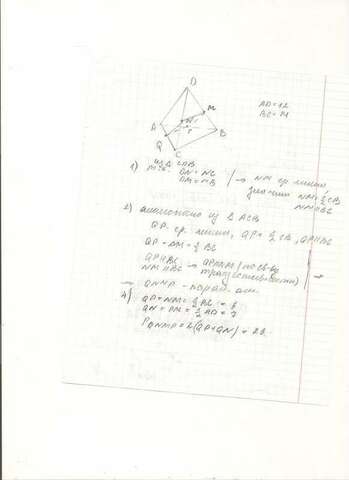 D
M
N
A
P
B
Q
C
AD = 12
BC = 14
1) из Δ CDB
DN = NC
DM = MB
→ NM ср. линия,
значит NM = ½ CB
NM || BC
2) аналогично из Δ ACB
QP ср. линия, QP = ½ CB, QP || BC
QP = NM = ½ BC
QP || BC
NM || BC → QP || NM (по св-ву
транзитивности)
→ QNMP - парал-
4) QP = NM = ½ BC =
QN = PM = ½ AD =
P QNMP = 2(QP + QN) = 2